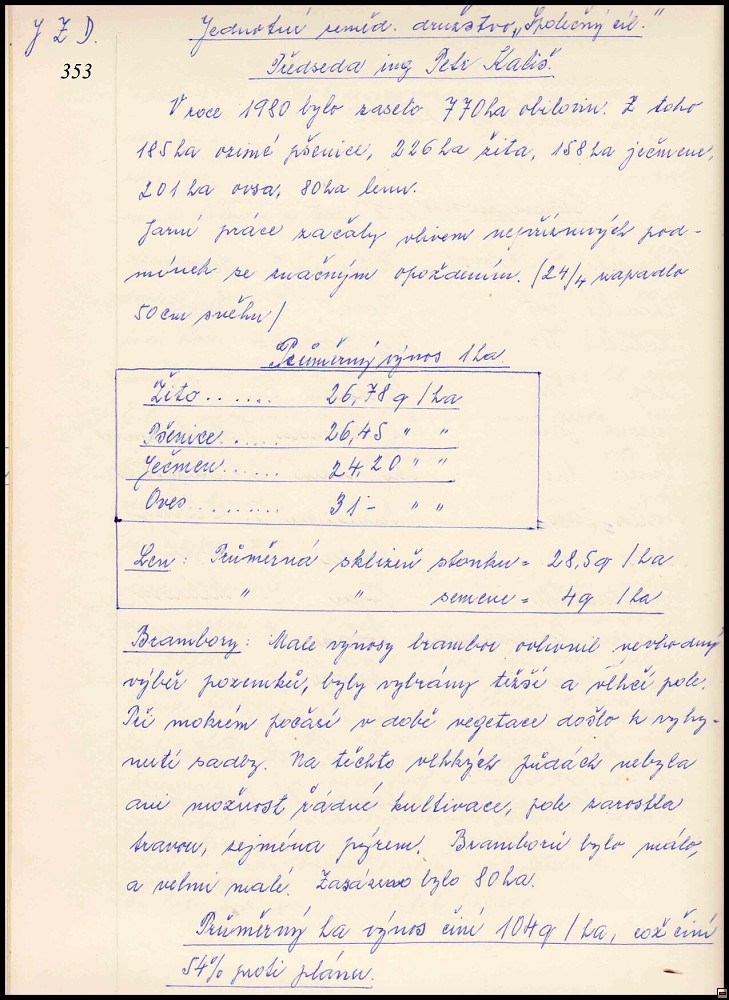 J Z D.
353
Jednotné zeměd. družstvo „Společný cíl."
Předseda ing Petr Kališ.
V roce 1980 bylo zaseto 770 ha obilovin. Z toho
185 ha ozimé pšenice, 226 ha žita, 158 ha ječmene,
201 ha ovsa, 80 ha lenu.
Jarní práce začaly vlivem nepříznivých pod-
mínek se značným opožděním. (24/4 napadlo
50 cm sněhu/
Průměrný výnos 1 ha.
Žito ....... 26,78 q /ha
Pšenice ..... 26,45 " "
Ječmen ...... 24,20 " "
Oves ........ 31 - " "
Len : Průměrná sklizeň stonku = 28,5 q /ha
" " semene = 4 q /ha
Brambory : Malé výnosy brambor ovlivnil nevhodný
výběr pozemků, byly vybrány těžší a vlhčí pole.
Při mokrém počasí v době vegetace došlo k vyhy-
nutí sadby. Na těchto vlhkých půdách nebyla
ani možnost řádné kultivace, pole zarostla
travou, zejména pýrem. Bramborů bylo málo,
a velmi malé. Zasázeno bylo 80 ha.
Průměrný ha výnos činí 104 q /ha, což činí
54% proti plánu.